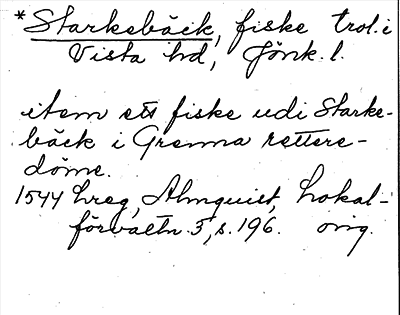 *Starkebäck, fiske trol. i
Vista hd, Jönk. l.
item ett fiske udi Starke-
bäck i Grenna rettere-
döme.
1544 hreg, Almquist, Lokal-
förvaltn. 3, s. 196. orig.